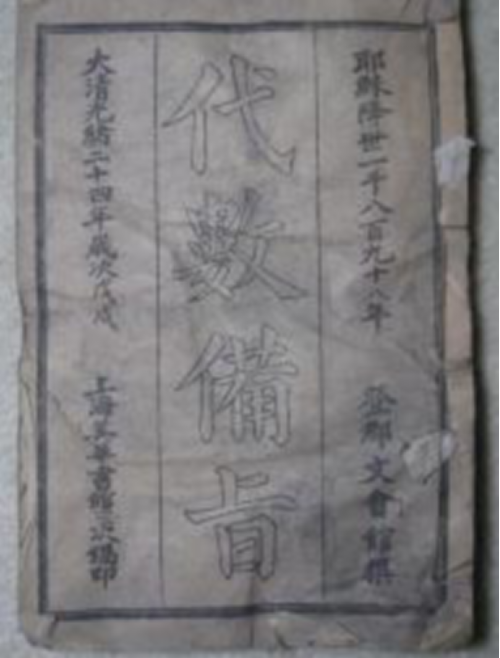 耶穌降世一千八百九十八年 登郡文會館撰
代數備旨
大清光緒二十四年歲次戊戌 上海美華書館次印